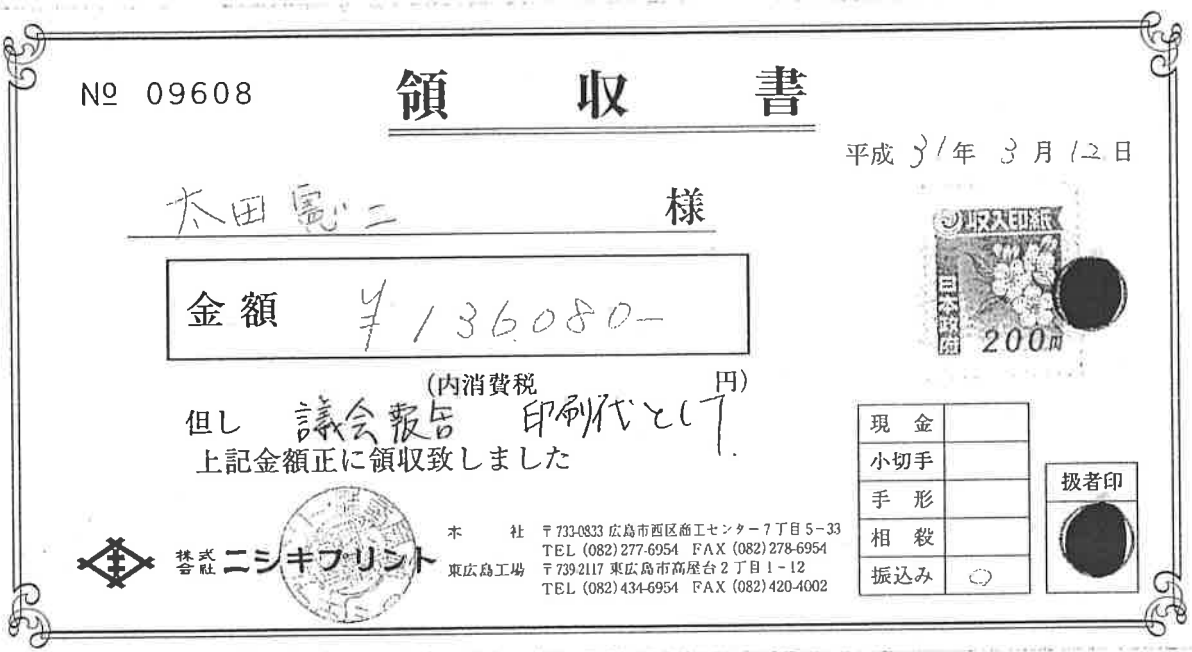 № 09608
領収書
平成 31年 3月 12日
太田憲二 様
収入印紙
日本政府
200円
金額 ¥136,080-
(内消費税 円)
但し 議会報告 印刷代として.
上記金額正に領収致しました
現金
小切手
手形
相殺
振込み ○
扱者印
株式会社 ニシキプリント
本社 〒733-0833 広島市西区商工センター7丁目5-33
TEL (082) 277-6954 FAX (082) 278-6954
東広島工場 〒739-2117 東広島市高屋台2丁目1-12
TEL (082) 434-6954 FAX (082) 420-4002